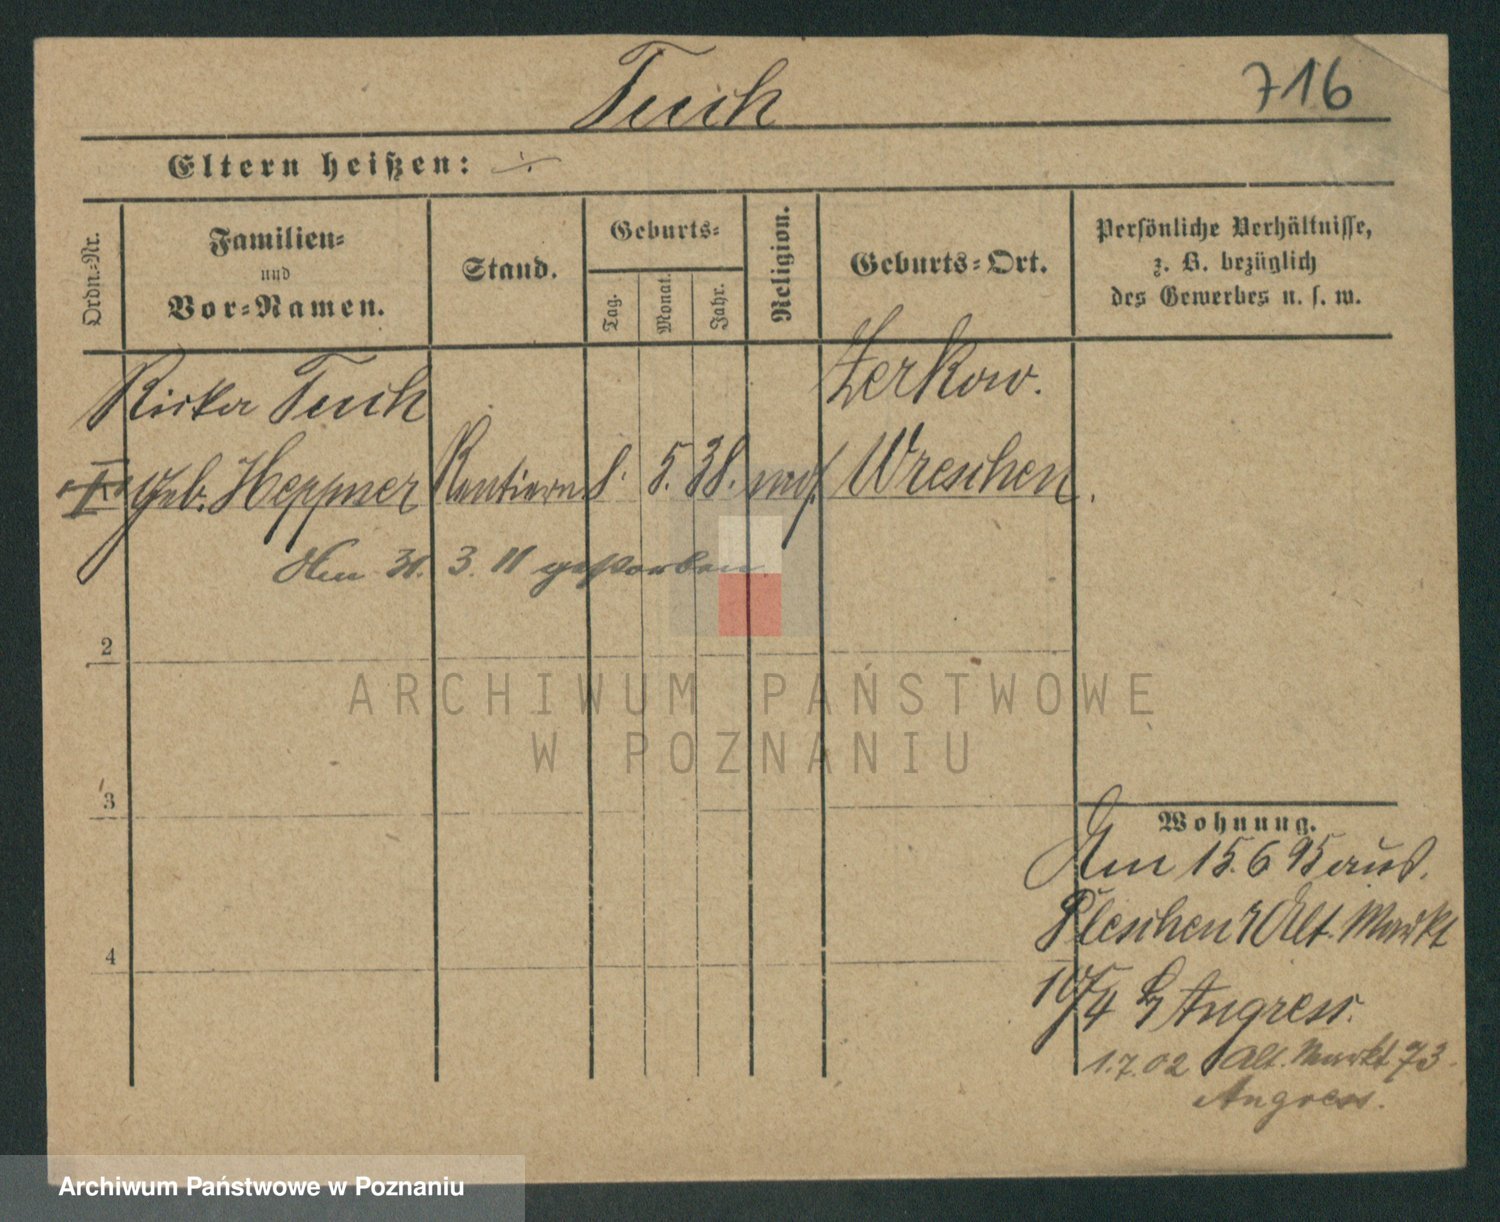 Tuch
716
Eltern heißen: ÷
Ordn.-Nr.
Familien- und Vor-Namen.
Stand.
Geburts-
Tag.
Monat.
Jahr.
Religion.
Geburts-Ort.
Persönliche Verhältnisse, z. B. bezüglich des Gewerbes u. s. w.
Rieka Tuch
Zerkow.
geb. Heppner Rentiere 8. 5. 38. mos. Wreschen.
Am 31. 3. 11 gestorben.
2
3
4
ARCHIWUM PAŃSTWOWE
W POZNANIU
Wohnung.
Am 15. 6 95 aus.
Pleschen Alt. Markt
Angress.
1.7.02 Alt. Markt 73.
Angress.
Archiwum Państwowe w Poznaniu